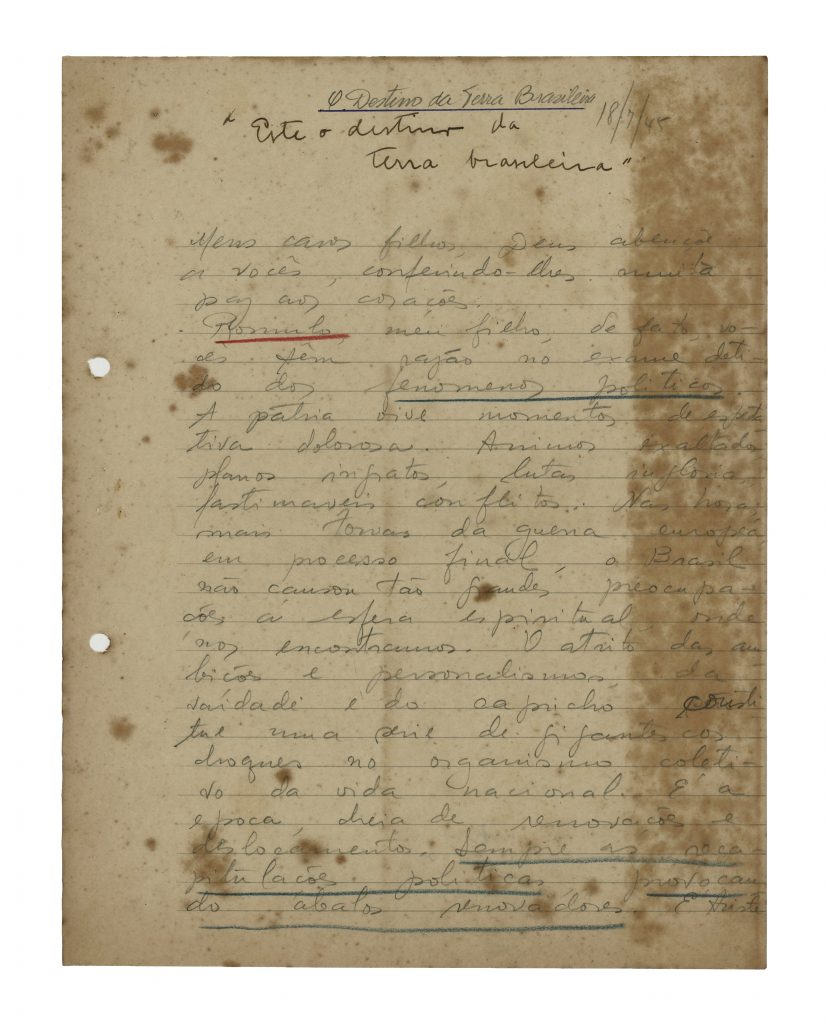 O Destino da Terra Brasileira
18/7/45
"Este o destino da
terra brasileira"
Meus caros filhos, Deus abençõe
a vocês, conferindo-lhes muita
paz aos corações.
Romulo, meu filho, de fato, vo-
cês têm razão no exame deti-
do dos fenomenos politicos.
A pátria vive momentos de espeta
tiva dolorosa. Animos exaltados
planos ingratos, lutas inglorias,
lastimaveis conflitos. Nas horas
mais torvas da guerra européa,
em processo final, o Brasil
não causou tão grandes preocupa-
ções á esfera espiritual, onde
nos encontramos. O atrito das am
bições e personalismos, da
vaidade e do capricho consti
tue uma serie de gigantescos
choques no organismo coleti-
vo da vida nacional. E' a
epoca cheia de renovações e
deslocamentos. Sempre as reca-
pitulações politicas provocan
do ábalos renovadores. E' triste